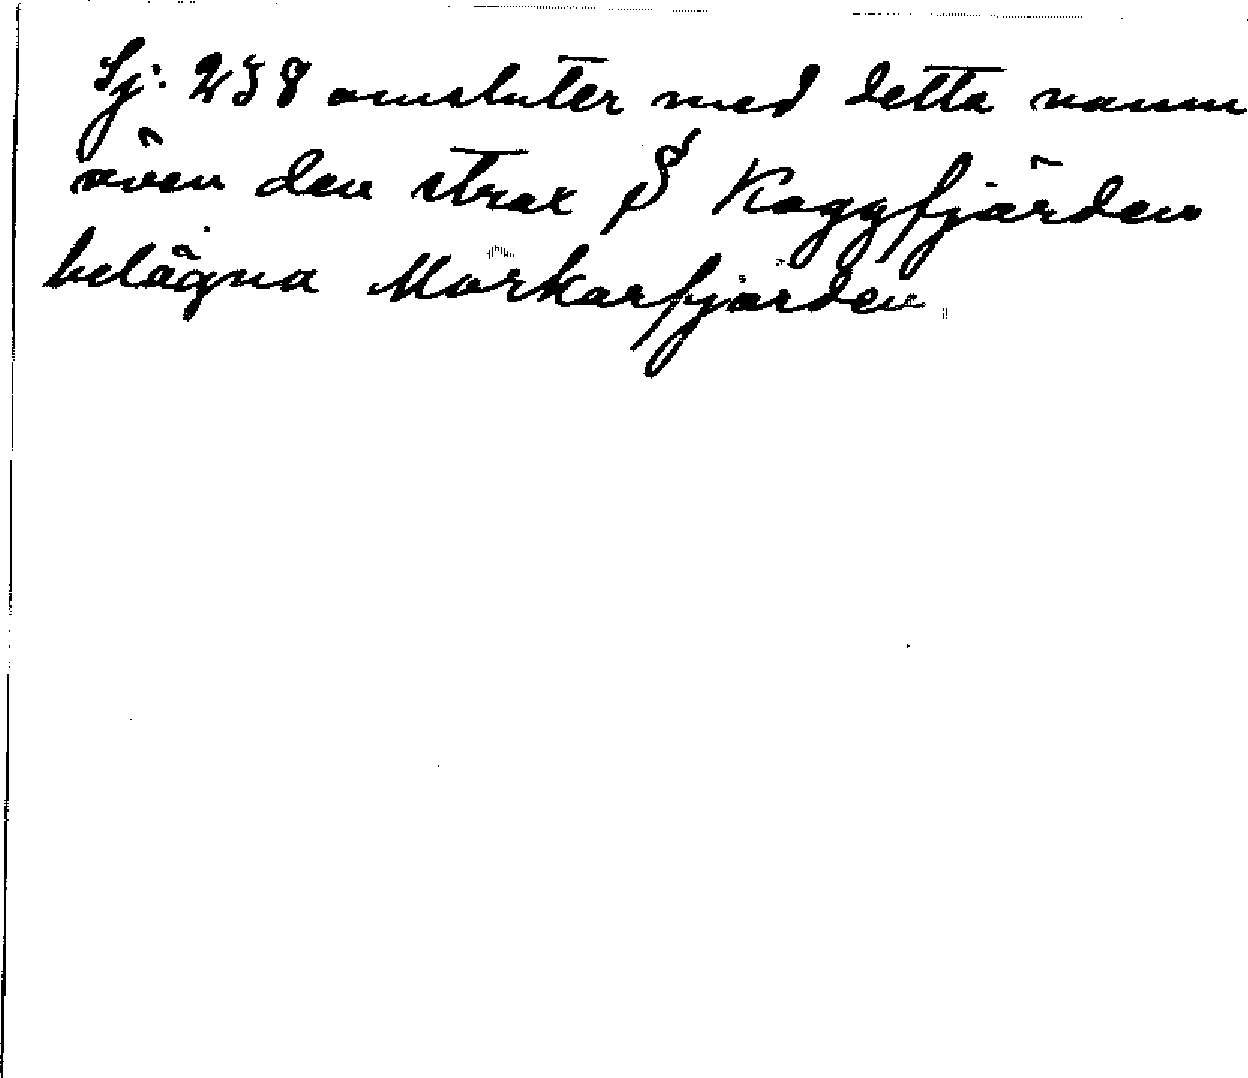 Sj: 238 omsluter med detta namn
även den strax S Kaggfjärden
belägna Morkarfjärden